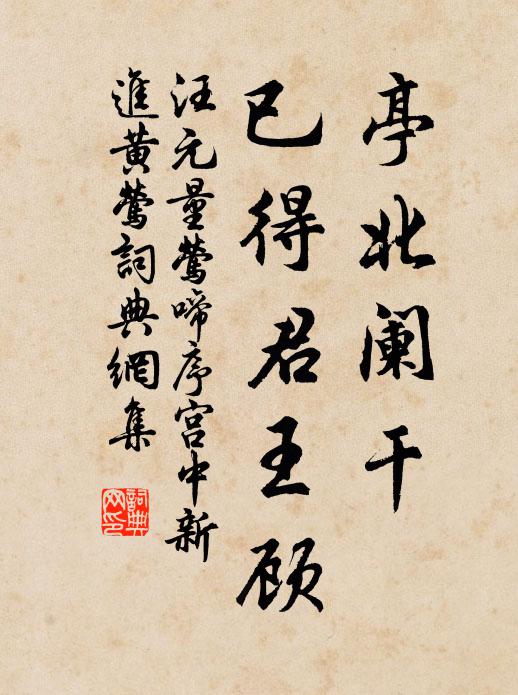 亭北阑干
已得君王顾
汪元量莺啼序宫中新
進黄莺詞典網集
詞典
网印